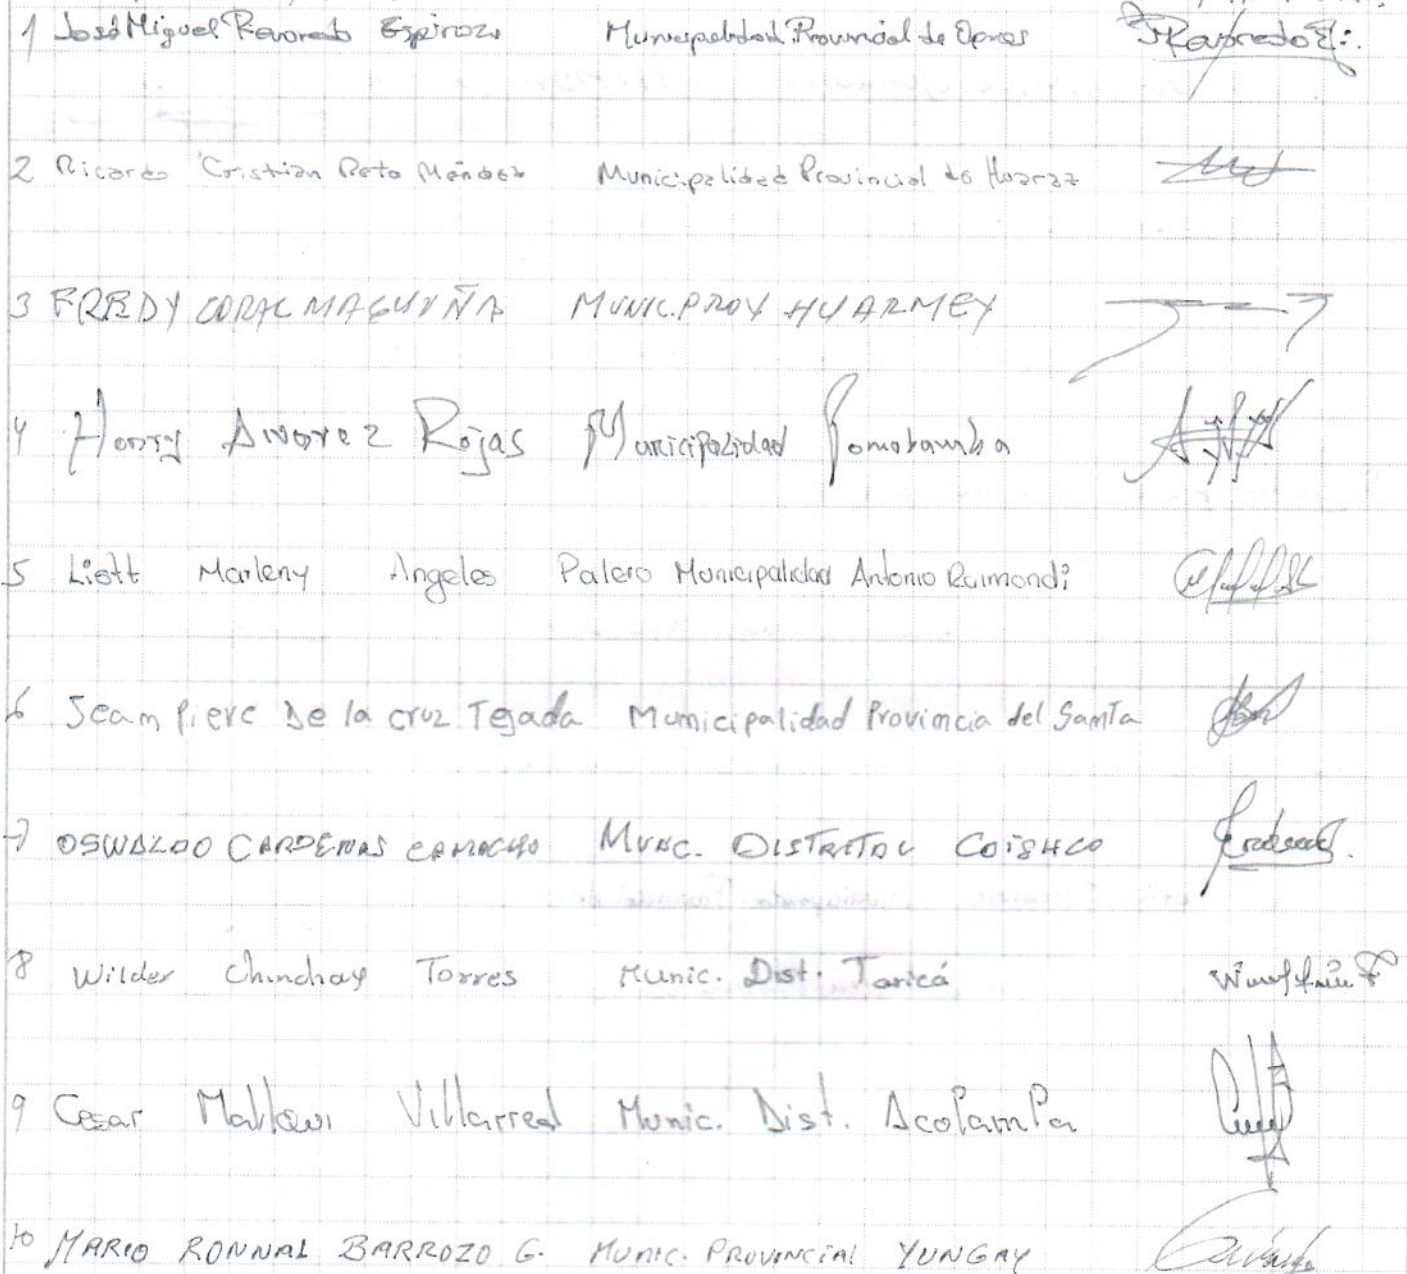 1 José Miguel Revoredo Espinoza Municipalidad Provincial de Opros
2 Ricardo Cristian Reto Méndez Municipalidad Provincial de Huaraz
3 FREDY CORAL MAGUIÑA MUNIC. PROV HUARMEY
4 Henry Alvarez Rojas Municipalidad Pomabamba
5 Liett Marleny Angeles Palero Municipalidad Antonio Raimondi
6 Jeam Piere De la cruz Tejada Municipalidad Provincia del Santa
7 OSWALDO CARDENAS CAMACHO MUNC. DISTRITAL COISHCO
8 Wilder Chinchay Torres Munic. Dist. Taricá
9 Cesar Mallqui Villarreal Munic. Dist. Acopampa
10 MARIO RONNAL BARROZO G. MUNIC. PROVINCIAL YUNGAY